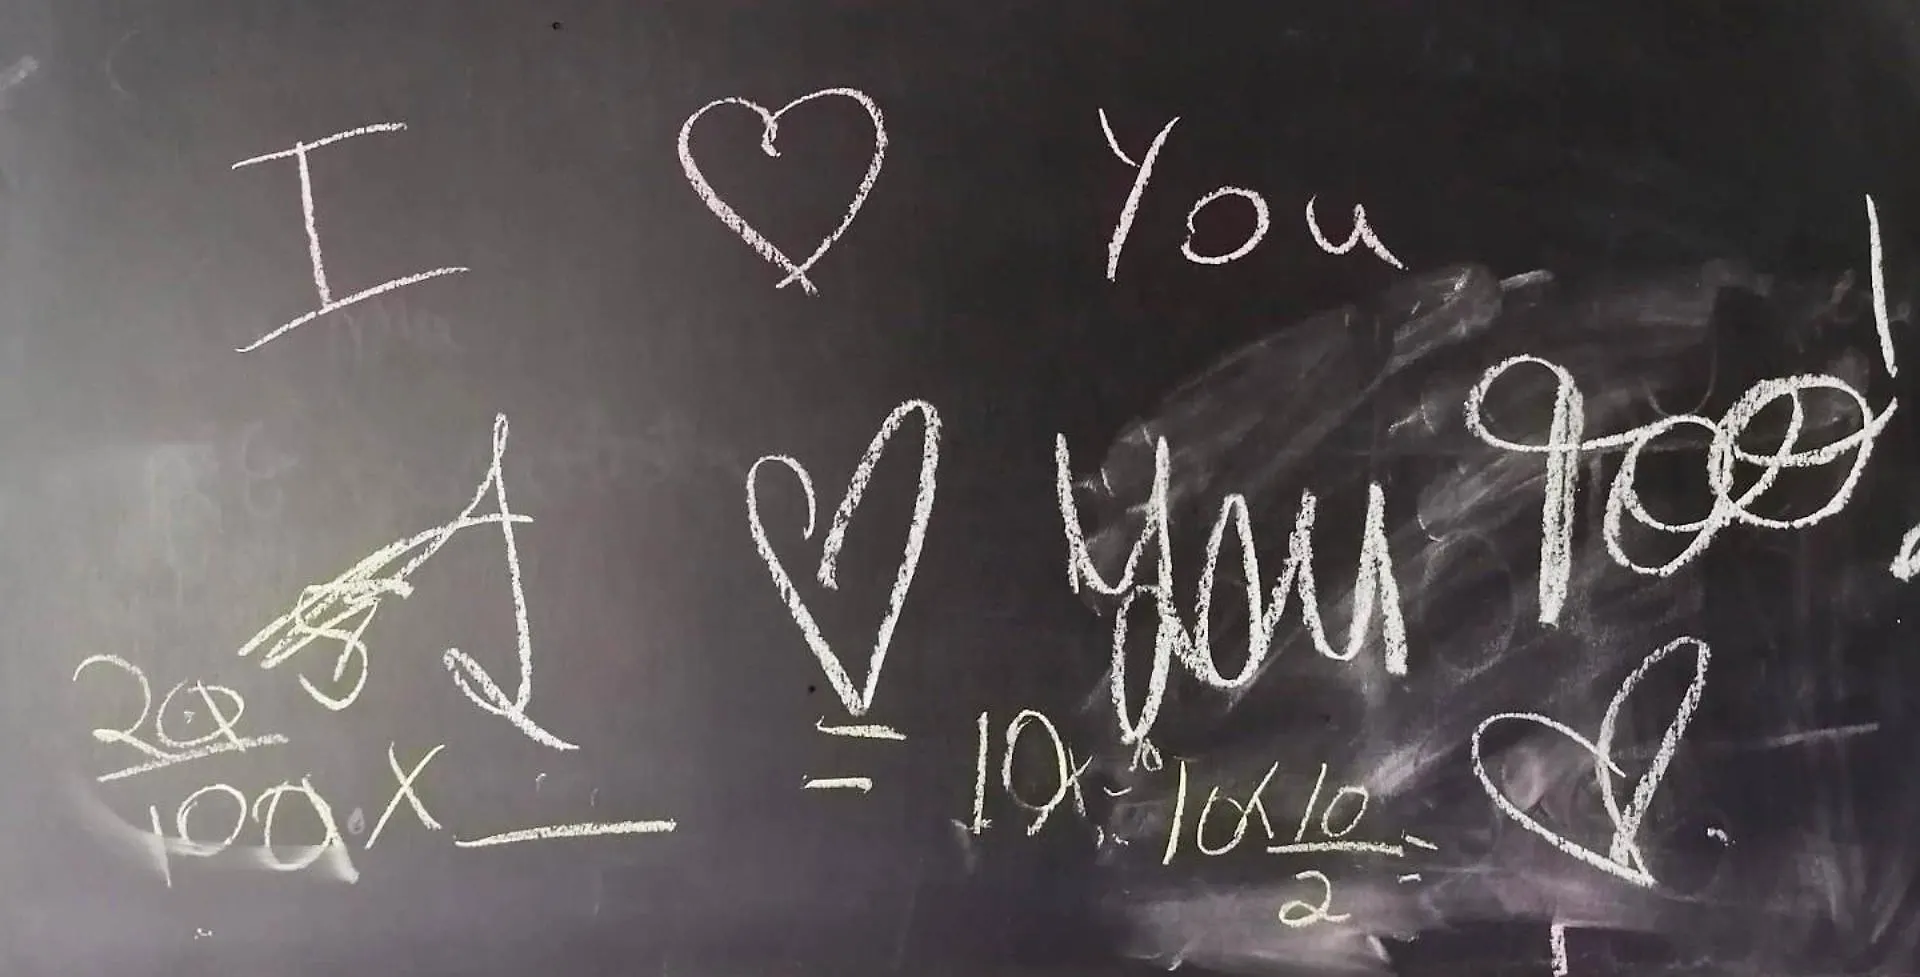 I ♡ You
I ♡ you too!
20/100 x ___ = 10x 10x 10/2 = ♡